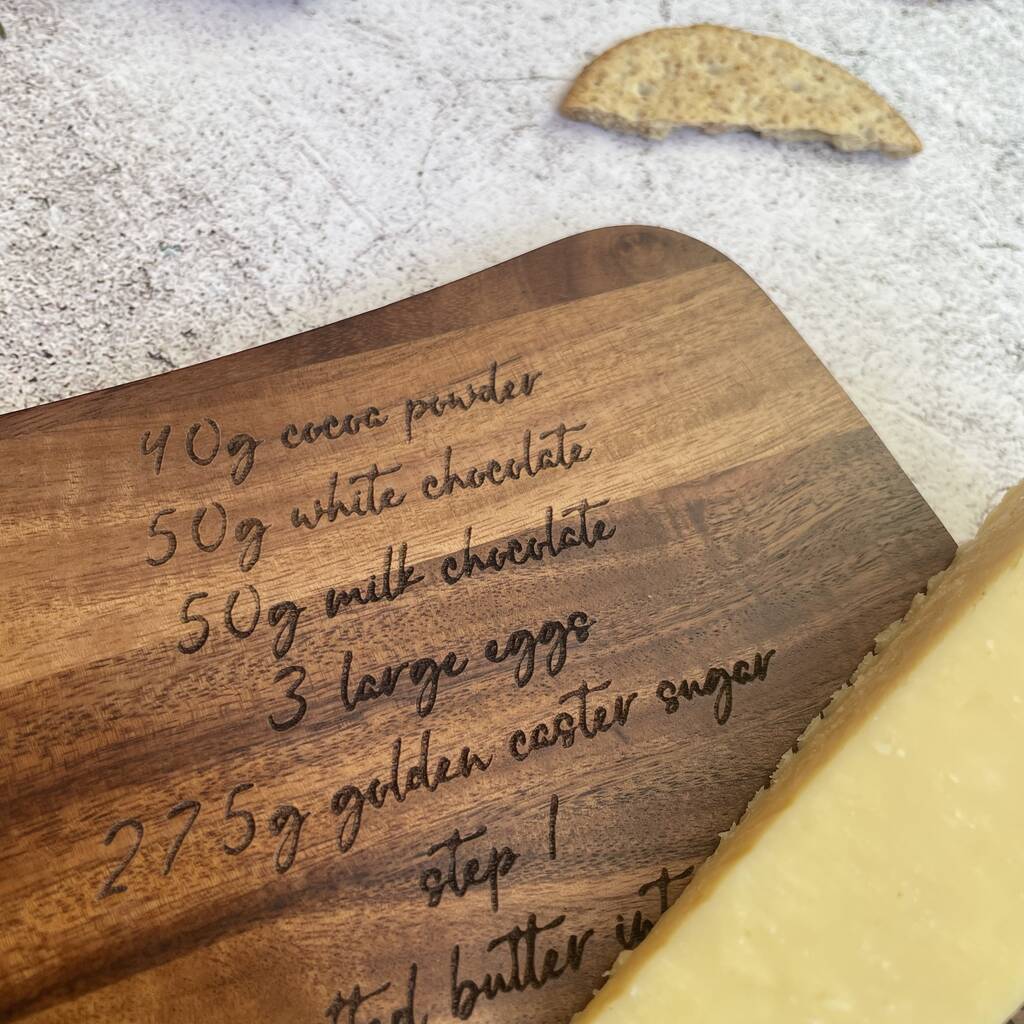 40g cocoa powder
50g white chocolate
50g milk chocolate
3 large eggs
275g golden caster sugar
step 1
butter